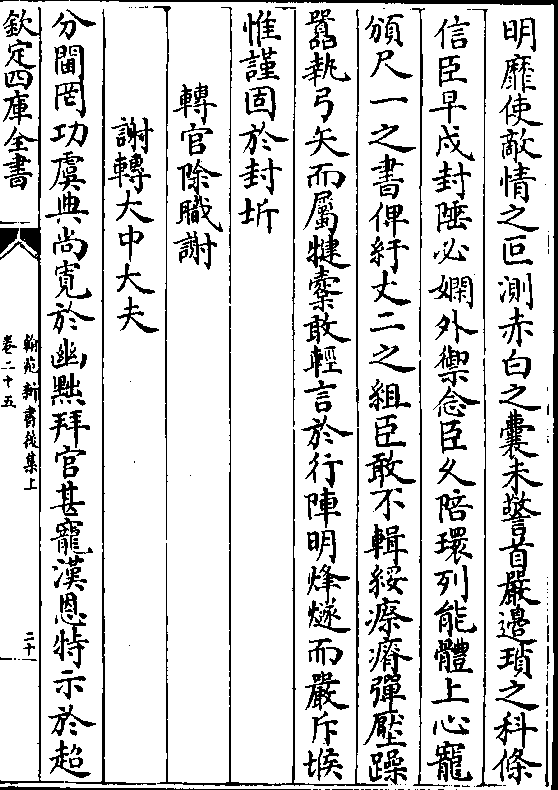 明靡使敵情之叵測赤白之囊未警首嚴邊瑣之科條
信臣早戍封陲必嫻外禦念臣久陪環列能體上心寵
頒尺一之書俾紆丈二之組臣敢不輯綏瘵瘠彈壓躁
嚚執弓矢而屬鞬櫜敢輕言於行陣明烽燧而嚴斥堠
惟謹固於封圻
轉官除職謝
謝轉大中大夫
分閫罔功虞典尚寛於幽黜拜官甚寵漢恩特示於超
欽定四庫全書
翰苑新書後集上
卷二十五
二十